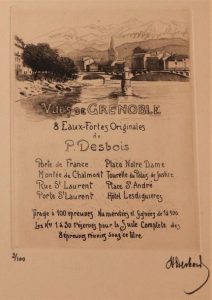 VUES DE GRENOBLE
8 Eaux-Fortes Originales
de
P. Desbois
Porte de France Place Notre Dame
Montée de Chalmont Tourelle du Palais de Justice
Rue St Laurent Place St André
Porte St Laurent Hôtel Lesdiguières
Tirage à 100 épreuves Numérotées et Signées de 1 à 100
Les Nos 1 à 50 Réservés pour la Suite Complète des
8 épreuves réunies sous ce titre
/100